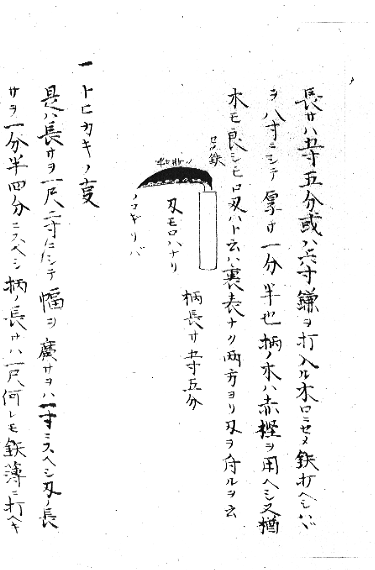 長サハ五寸五分或ハ六寸鎌ヲ打入ル木口ニセメ鉄打ヘシハヾ
ヲ八寸ニシテ厚サ一分半也柄ノ木ハ赤樫ヲ用ヘシ又楢
木モ良シモロ刃ハト云ハ裏表ナク両方ヨリ刃ヲ付ルヲ云
口鉄
ノコキリバ
刃モロハナリ
柄長サ五寸五分
一 トヒカキノ変
是ハ長サヲ一尺二寸ニシテ幅ヲ廣サヲハ一寸ニスヘシ刃ノ長
サヲ一分半四分ニスヘシ柄ノ長サハ一尺何レモ鉄薄ニ打ヘキ